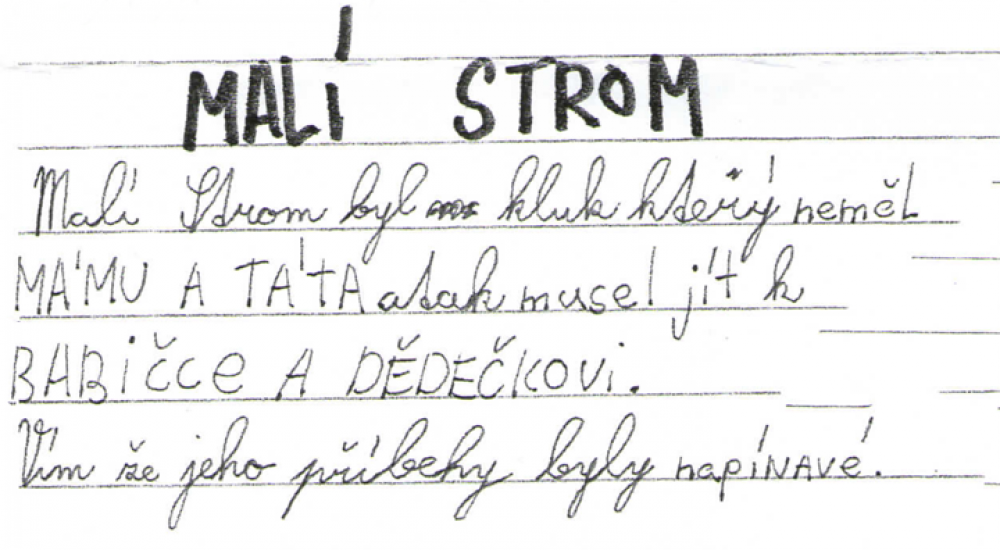 MALÍ STROM
Malí Strom byl kluk kteřý neměl
MÁMU A TÁTA atak musel jít k
BABiČCe A DĚDEČKOVi.
Vím že jeho příbehy byly napínavé.